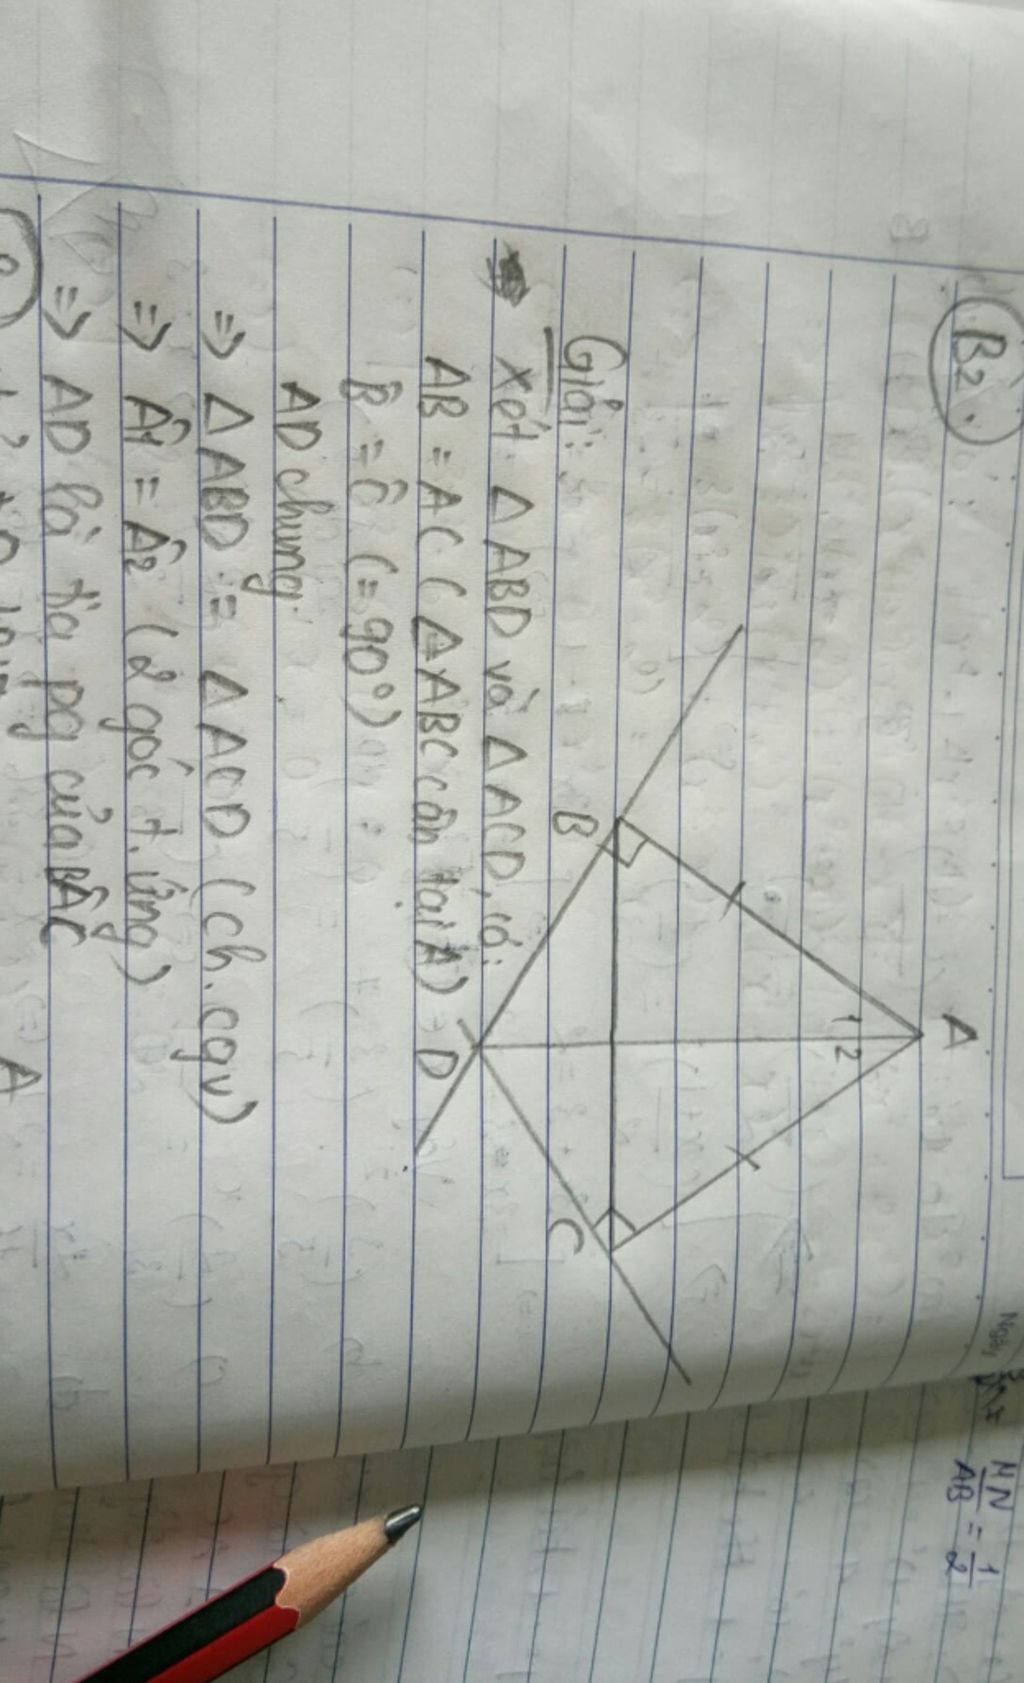 B2.
A
1 2
B
C
D
Giải:
Xét △ABD và △ACD, có:
AB = AC (△ABC cân tại A)
B̂ = Ĉ (= 90°)
AD chung.
=> △ABD = △ACD (ch. cgv)
=> Â1 = Â2 (2 góc t. ứng)
=> AD là tia pg của BÂC
A
Ngày
MN/AB = 1/2